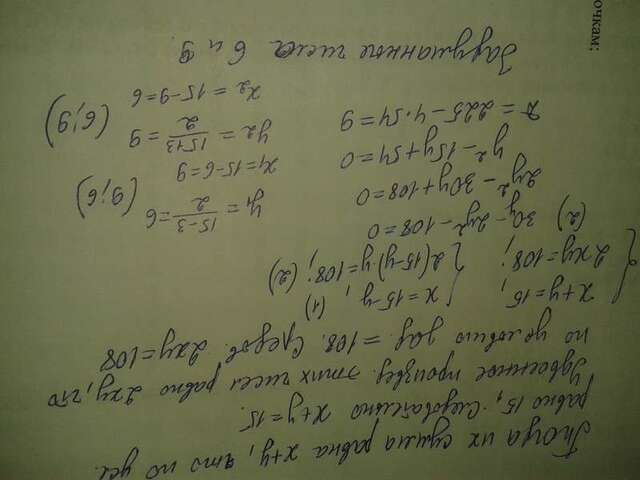 Тогда их сумма равна x+y, что по усл.
равно 15, Следовательно x+y=15.
Удвоенное произвед. этих чисел равно 2xy, что
по условию зад. = 108. Следов. 2xy=108
{ x+y=15, { x=15-y, (1)
2xy=108; 2(15-y)y=108; (2)
(2) 30y-2y²-108=0
2y²-30y+108=0
y²-15y+54=0
Д=225-4·54=9
y₁=(15-3)/2=6 (9; 6)
x₁=15-6=9
y₂=(15+3)/2=9 (6; 9)
x₂=15-9=6
Задуманные числа 6 и 9.
очкам: